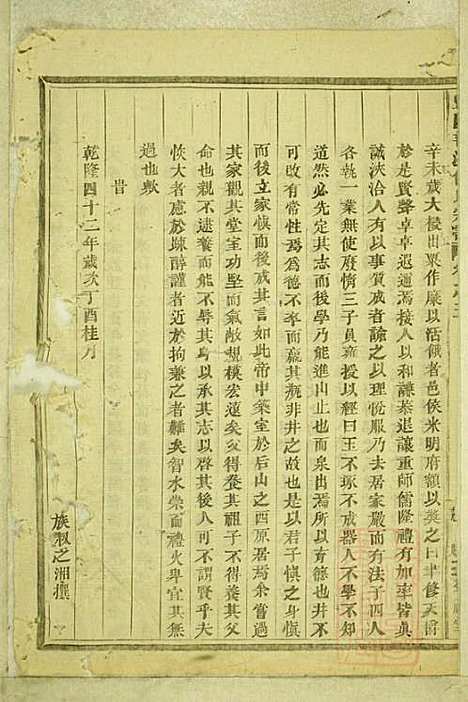 辛未歲大祲出粟作糜以活餓者邑侯米明府額以獎之曰聿修天爵
於是賢聲卓卓遐邇焉接人以和謙恭退讓重師儒隆禮有加率皆真
誠浹洽人有以是非質者諭之以理悅服乃去居家嚴而有法子四人
各執一業無使廢惰三子員庠授以經曰玉不琢不成器人不學不知
道然必先定其志而後學乃能進山止也而泉出焉所以育德也井不
可改有常性焉爲德不率而羸其瓶非井之故也是以君子慎之身慎
而後立家慎而後成其言如此帝申築室於后山之西原居焉余嘗過
其家觀其堂室功堅而氣敞規模宏遠矣父得養其祖子不得養其父
命也親不逮養而能不辱其身以承其志以啓其後人可不謂賢乎夫
恢大者處於疎醇謹者近於拘兼之者難矣智水崇而禮火卑宜其無
過也歟
旹
乾隆四十二年歲次丁酉桂月
族叔之湘撰